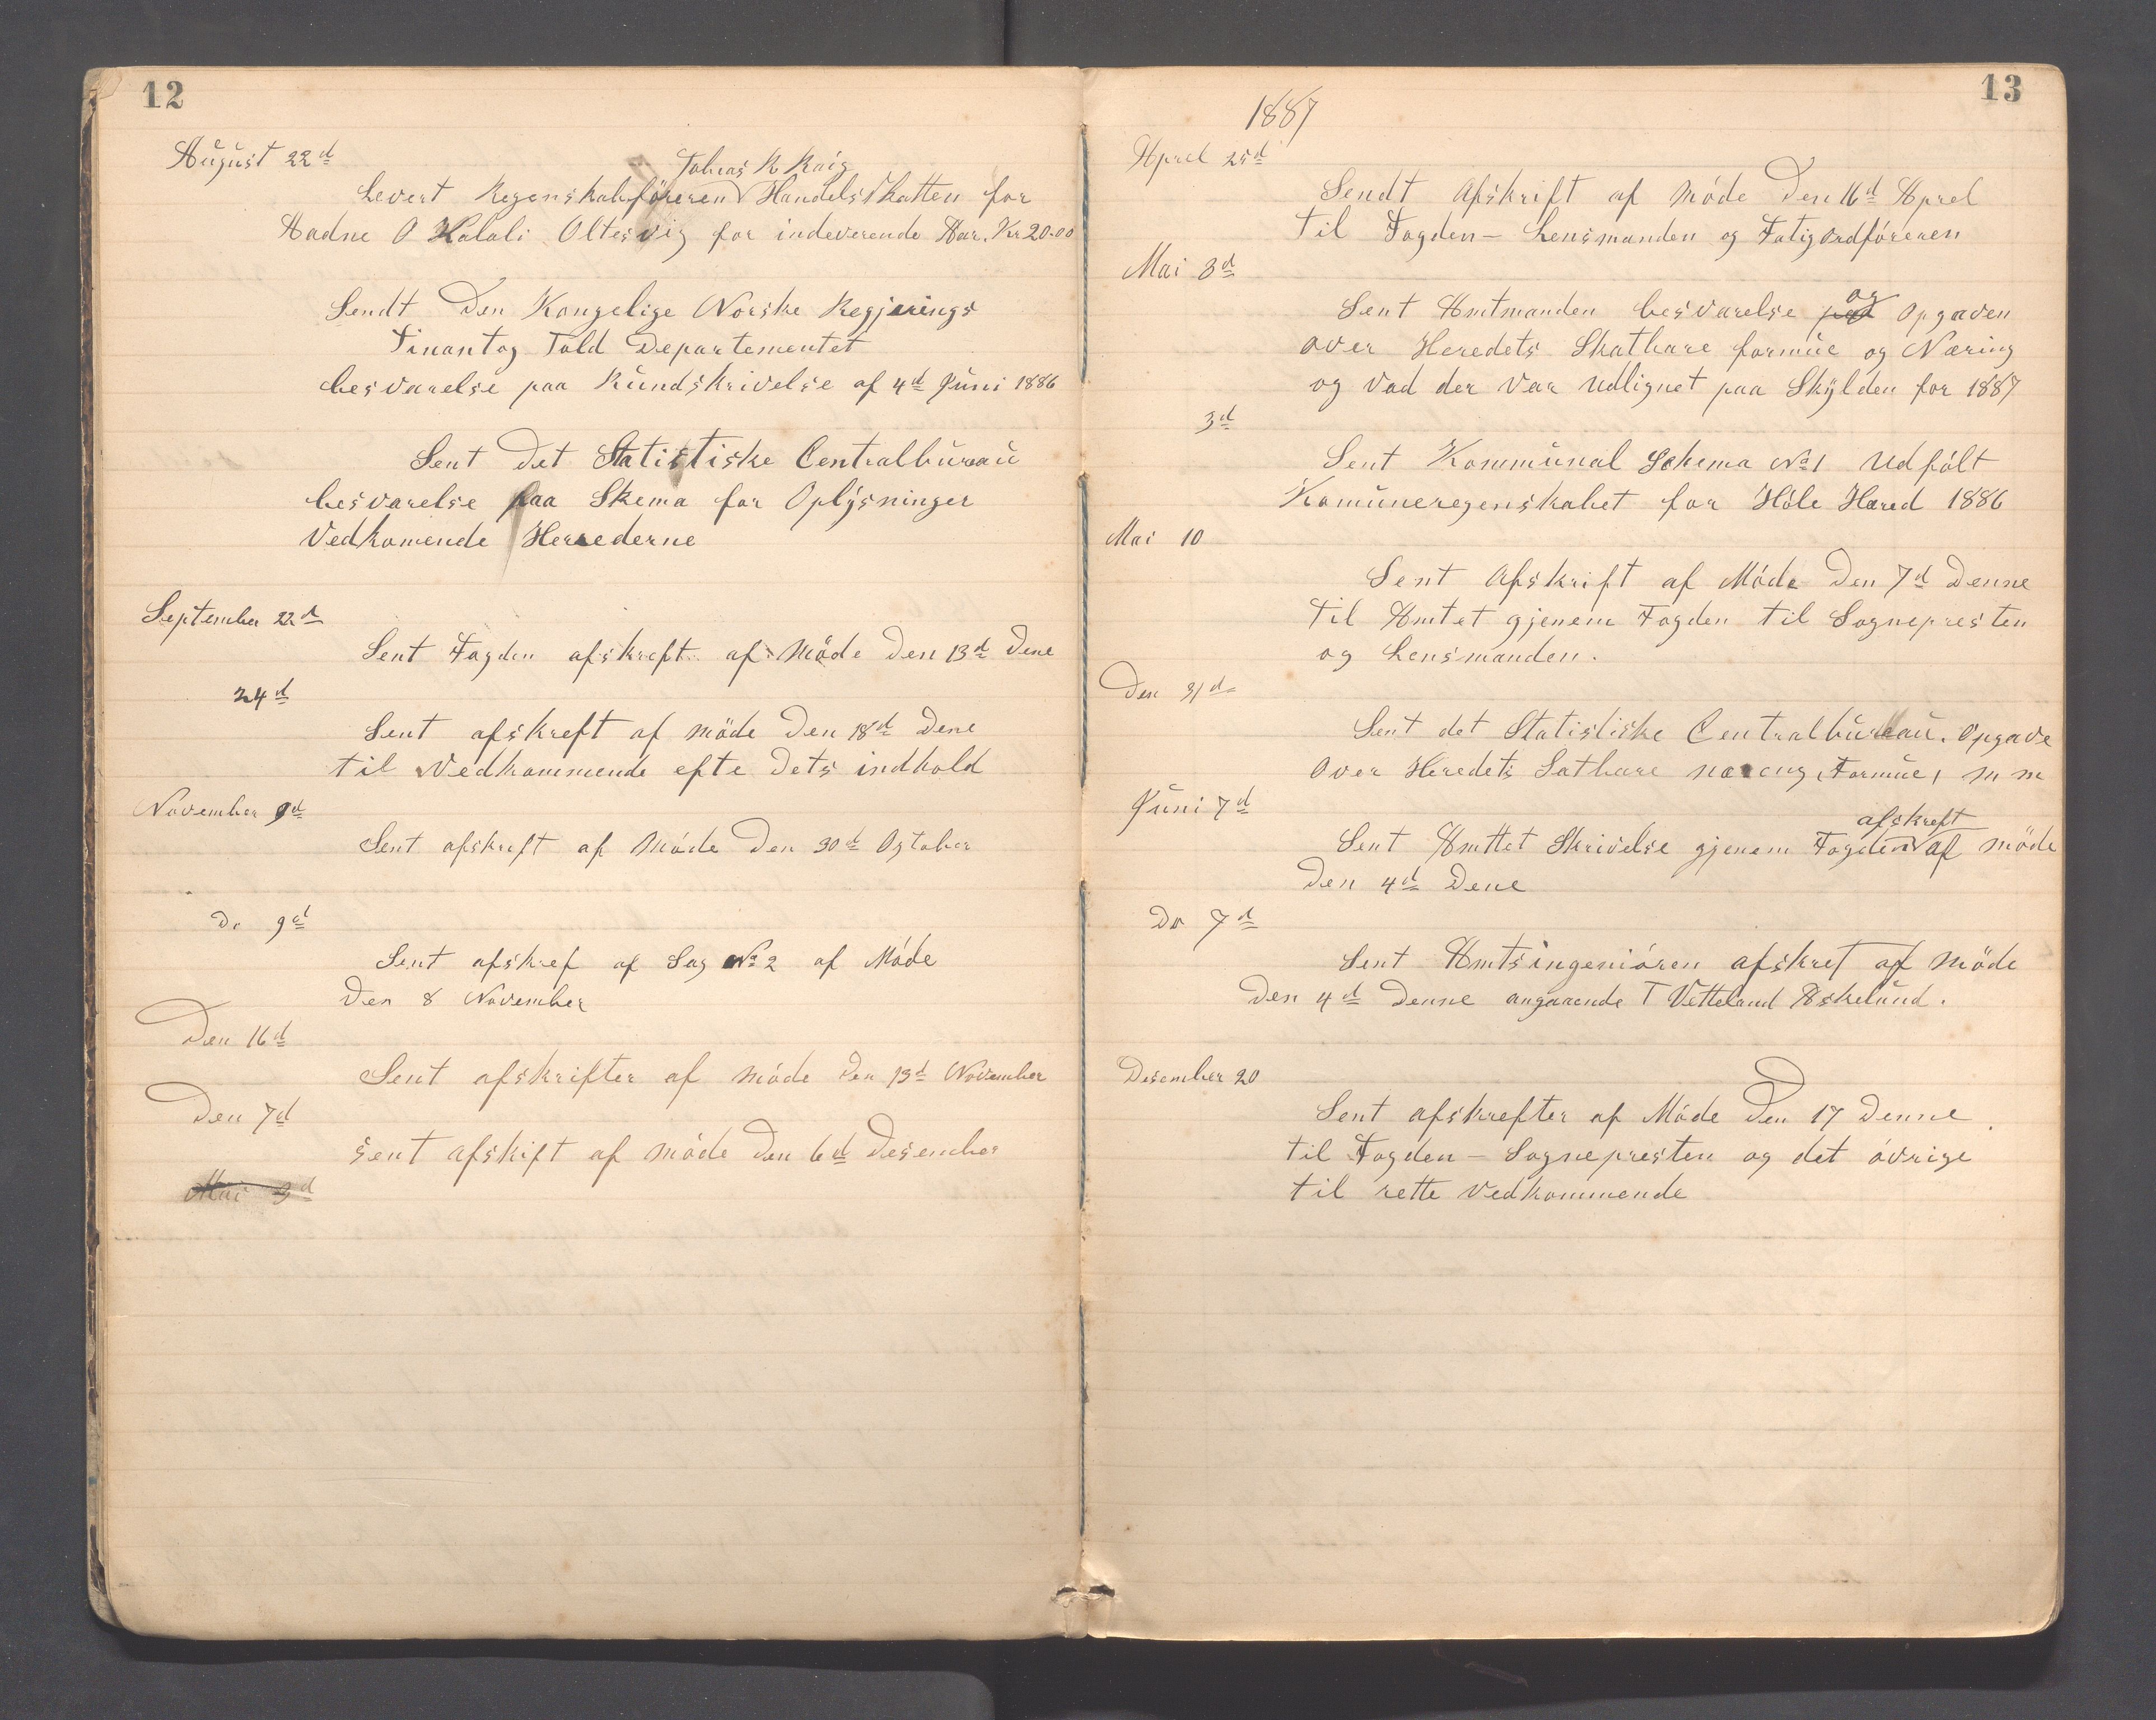 12
August 22d
Tobias R Raig
Levert Regenskabsföreren Handelsskatten for
Aadne O Kolali Oltesvig for indeverende Aar. Kr 20.00
Sendt Den Kongelige Norske Regjerings
Finant og Told Departementet
besvarelse paa Rundskrivelse af 4d Juni 1886
Sent Det Statistiske Centralbureau
besvarelse paa Skema for Oplysninger
Vedkomende Herrederne
September 22d
Sent Fogden afskreft af Möde Den 13d Dene
24d
Sent afskreft af Möde Den 18d Dene
til Vedkommende efte Dets indhold
November 9d
Sent afskreft af Möde Den 30d Ogtober
Do 9d
Sent afskref af Sag No 2 af Möde
Den 8 November
Den 16d
Sent afskrifter af Möde Den 13d November
Den 7d
Sent afskift af Möde Den 6d Desember
Mai 3d
13
1887
Aprel 25d
Sendt Afskrift af Möde Den 16d Aprel
til Fogden - Lensmanden og Fatigordföreren
Mai 3d
og
Sent Amtmanden besvarelse paa Opgaven
over Heredets Skatbare formue og Næring
og Vad der Var Udlignet paa Skylden for 1887
3d
Sent Kommunal Schema No 1 Udfölt
Komuneregenskabet for Höle Hered 1886
Mai 10
Sent Afskrift af Möde Den 7d Denne
til Amtet gjenem Fogden til Sognepresten
og Lensmanden.
Den 31d
Sent det Statistiske Centralbureau. Opgave
Over Heredets Satbare næreng, Formue, m m
Juni 7d
afskreft
Sent Amttet Skrivelse gjenem Fogden af möde
Den 4d Dene
Do 7d
Sent Amtsingeniören afskret af Möde
Den 4d Denne angaaende T Vetteland Eskelund.
Desember 20
Sent afskrefter af Möde Den 17 Denne
til Fogden - Sognepresten og det övrige
til rette Vedkommende